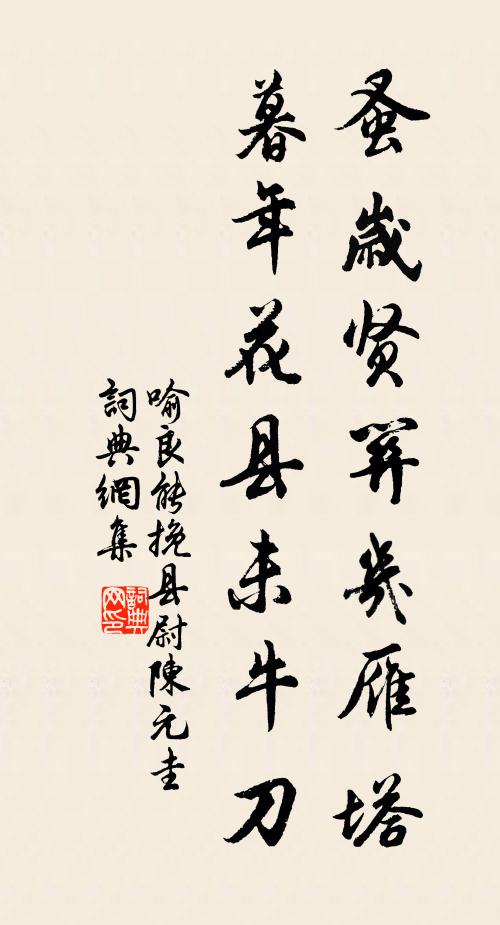 蚤歲贤關幾雁塔
暮年花县未牛刀
喻良能挽县尉陳元圭
詞典網集
詞典
网印